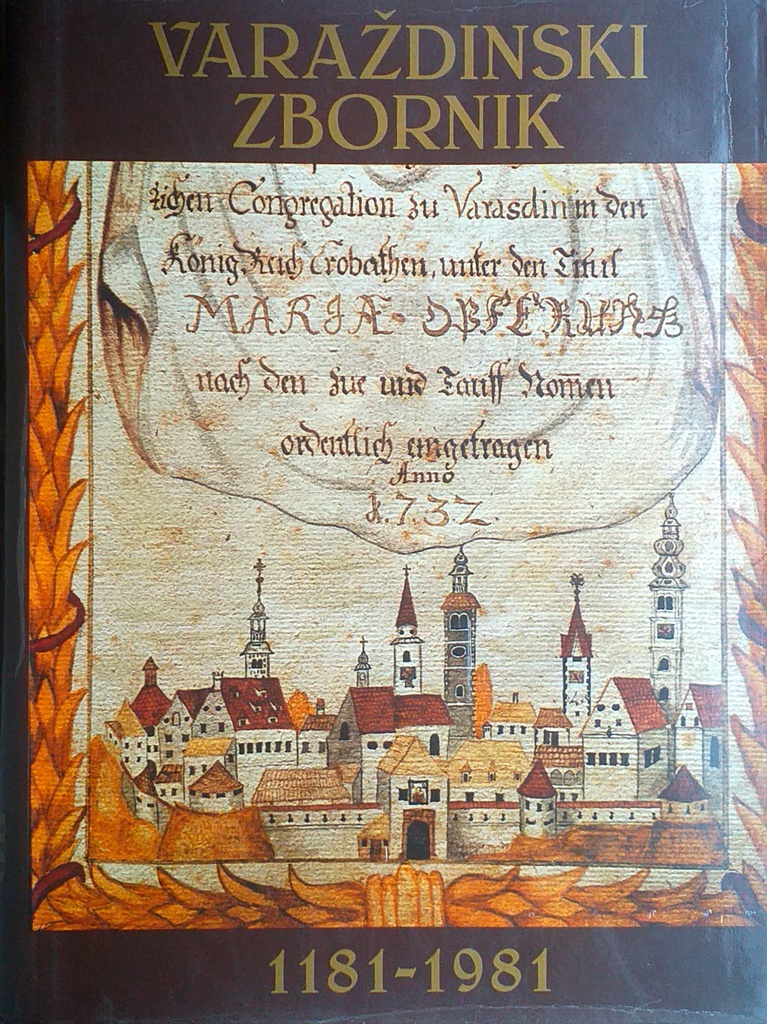 VARAŽDINSKI
ZBORNIK
lichen Congregation zu Varasdin in den
König Reich Crobathen, unter den Titul
MARIÆ OPFERUNG
nach den Zue und Tauff Nom̄en
ordentlich eingetragen
Anno
1.7.3.2.
1181-1981